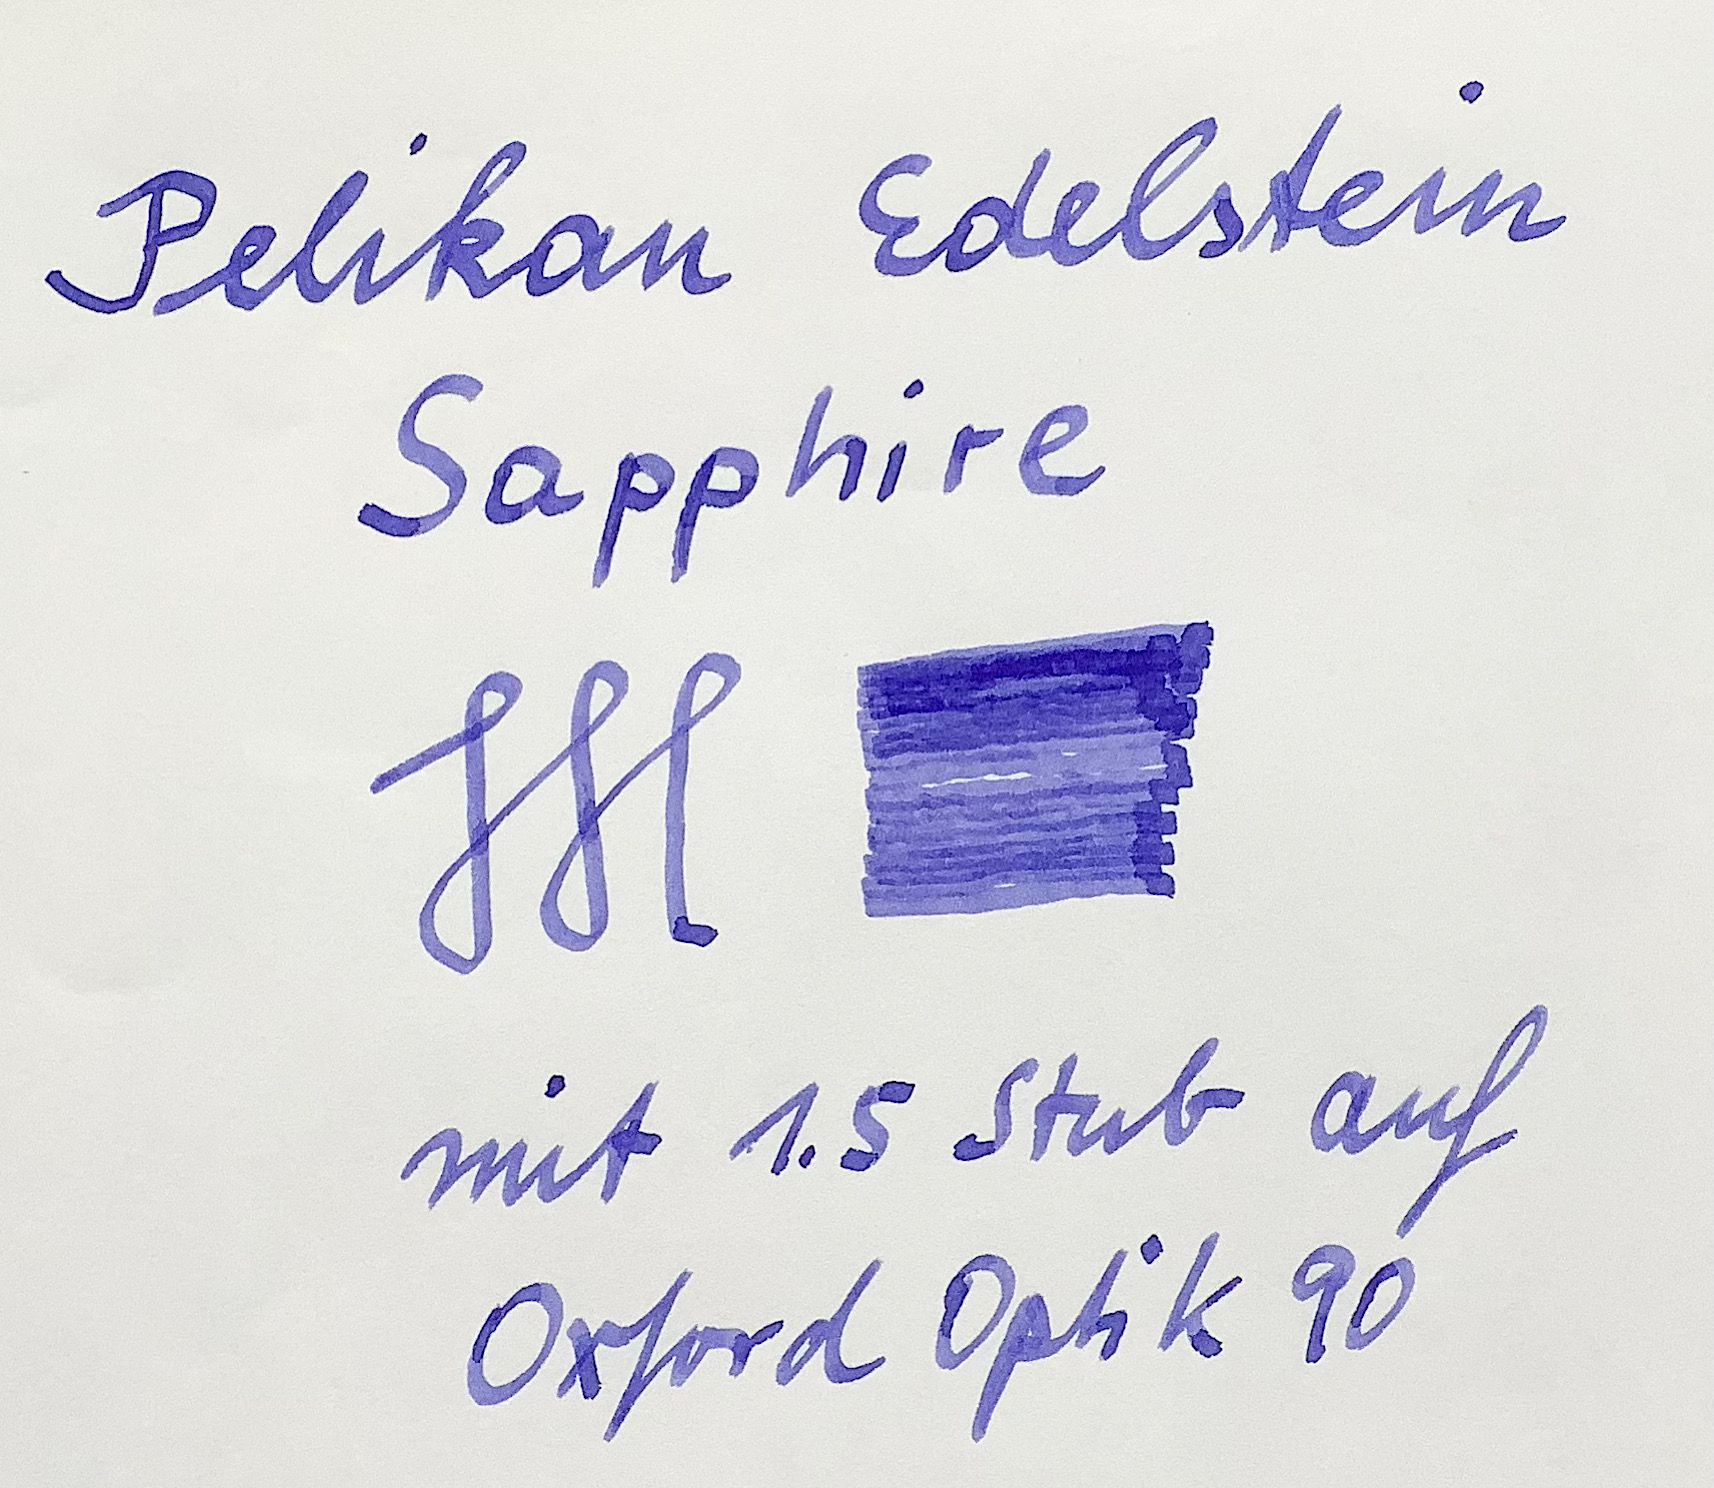 Pelikan Edelstein
Sapphire
mit 1.5 Stub auf
Oxford Optik 90